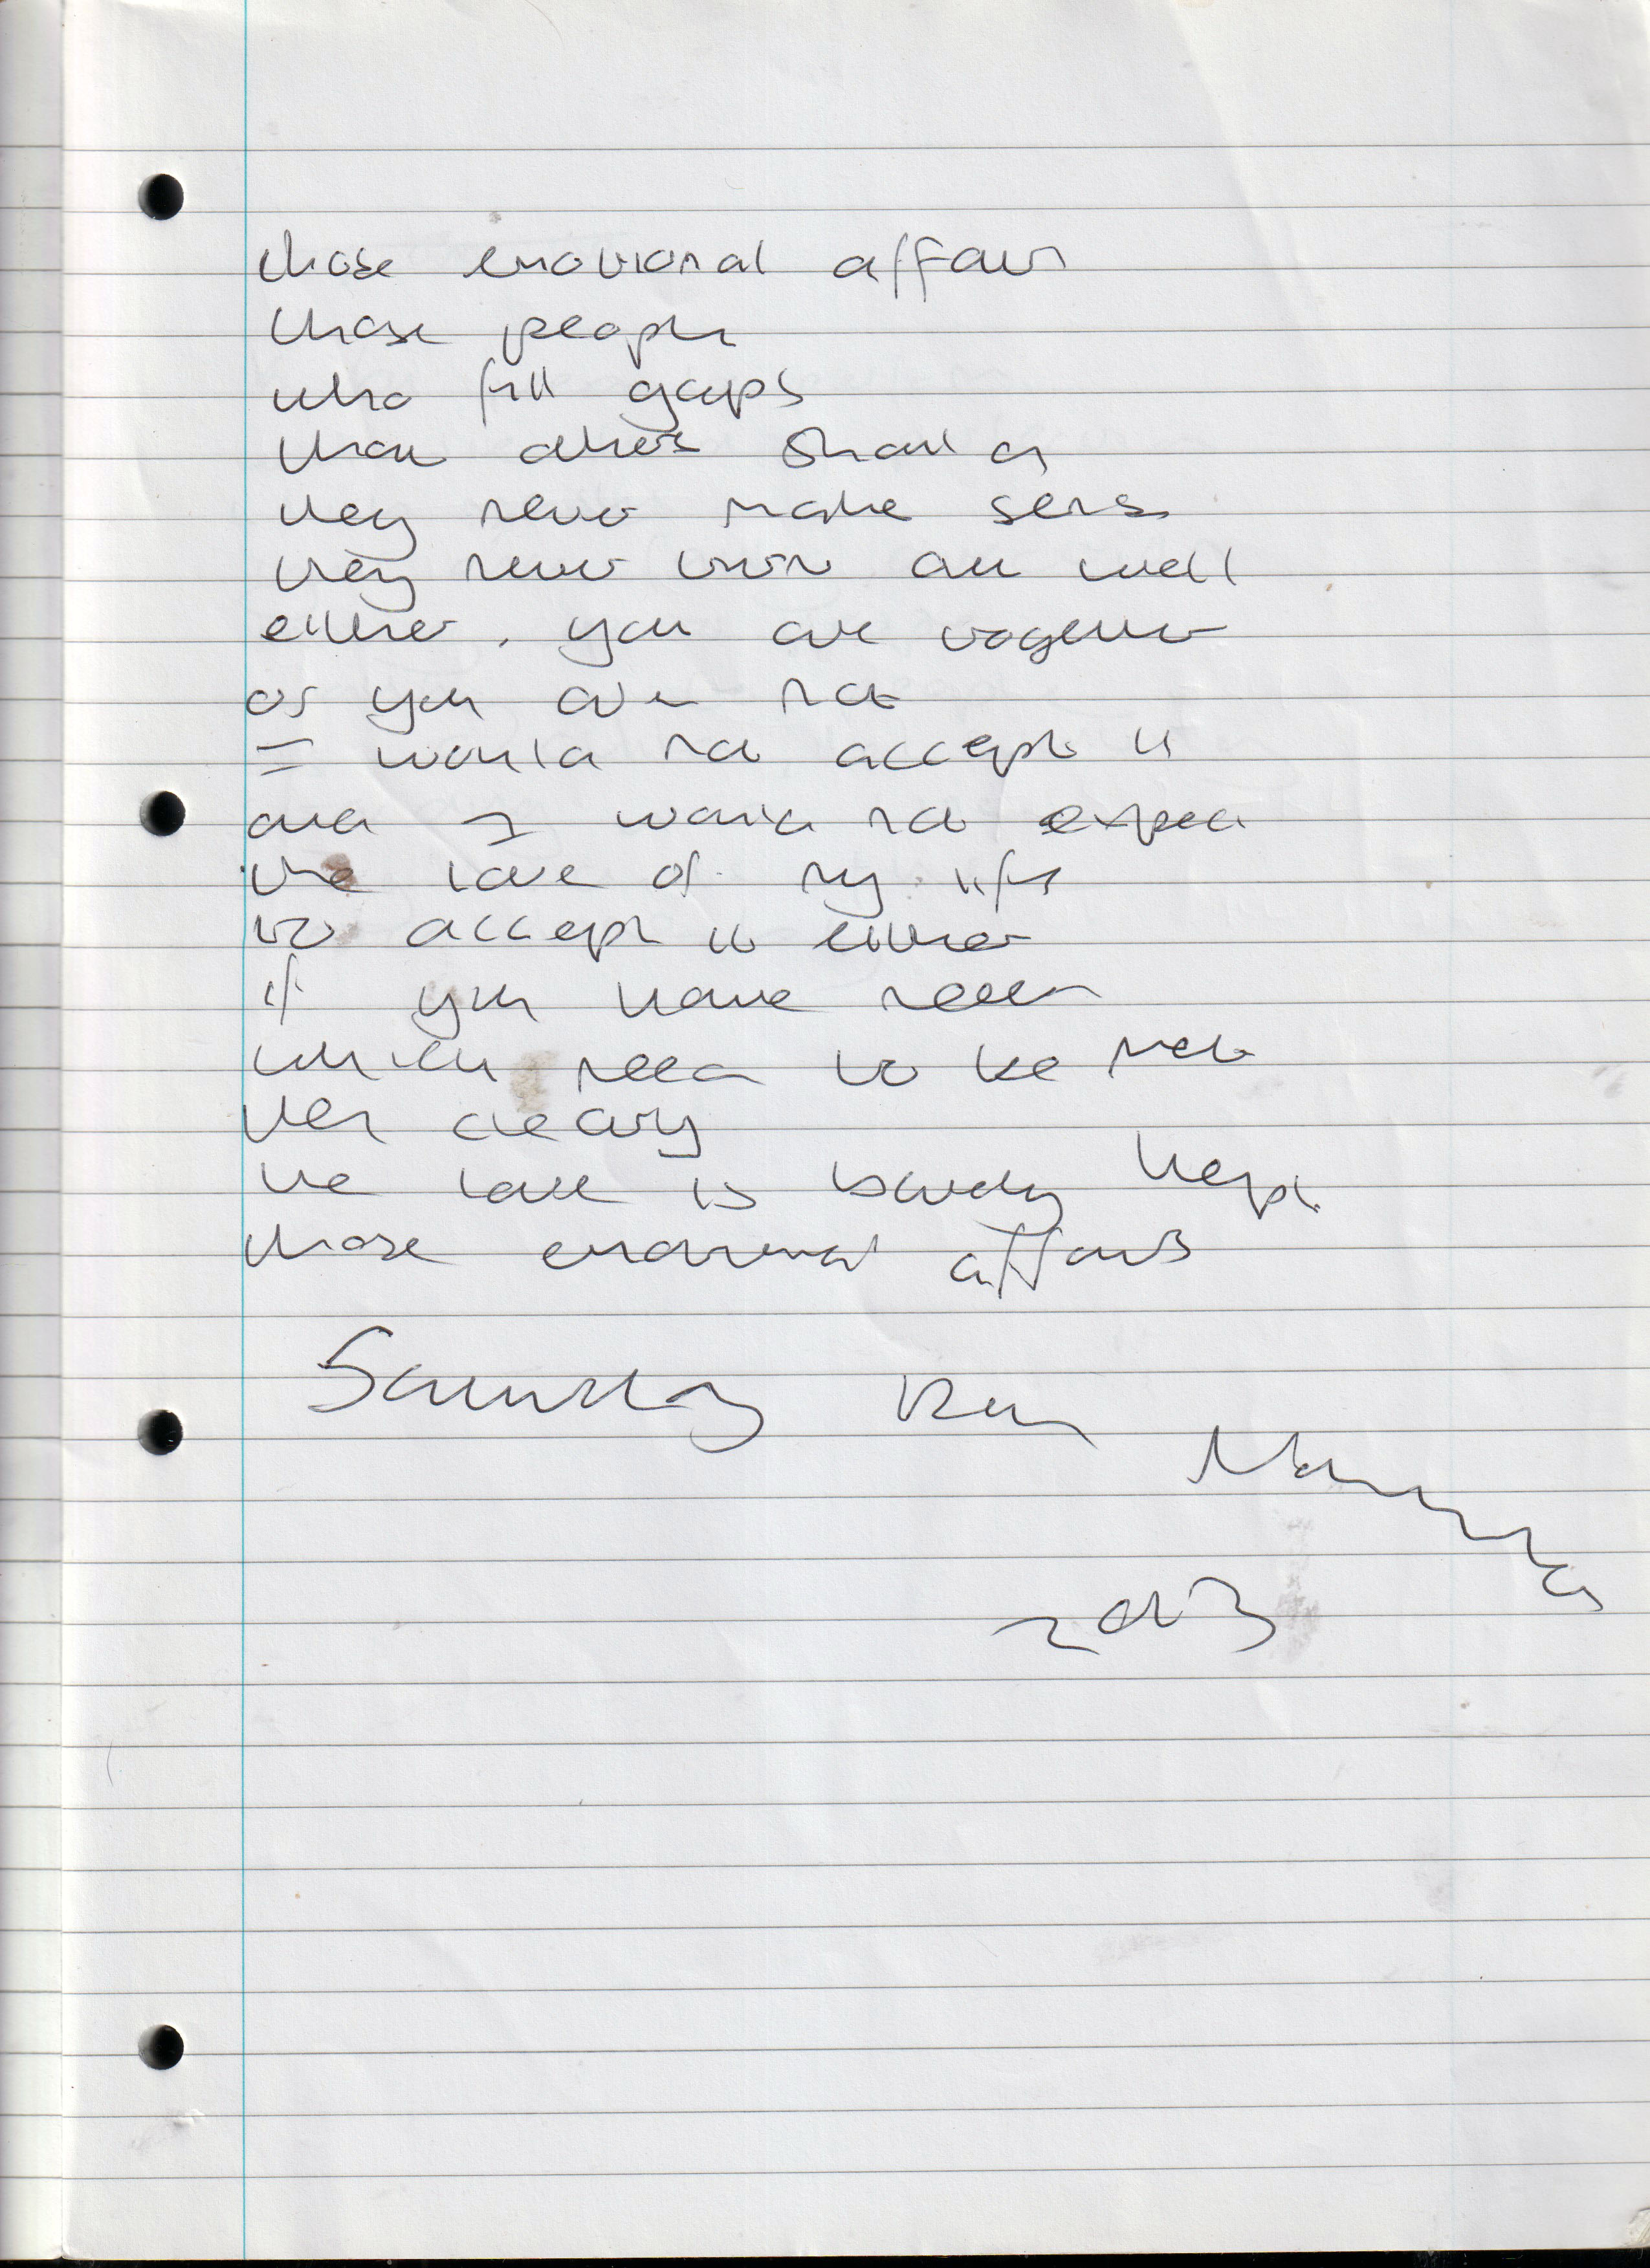 those emotional affairs
those people
who fill gaps
that others should
they never make sense
they never turn out well
either, you are together
or you are not
I would not accept it
and I would not expect
the love of my life
to accept it either
if you have needs
which need to be met
then clearly
the love is barely kept
those emotional affairs
2013